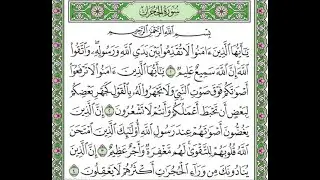 سُورَةُ الحُجُرَاتِ
بِسْمِ اللَّهِ الرَّحْمَٰنِ الرَّحِيمِ
يَا أَيُّهَا الَّذِينَ ءَامَنُوا لَا تُقَدِّمُوا بَيْنَ يَدَيِ اللَّهِ وَرَسُولِهِ وَاتَّقُوا
اللَّهَ إِنَّ اللَّهَ سَمِيعٌ عَلِيمٌ ١ يَا أَيُّهَا الَّذِينَ ءَامَنُوا لَا تَرْفَعُوا
أَصْوَاتَكُمْ فَوْقَ صَوْتِ النَّبِيِّ وَلَا تَجْهَرُوا لَهُ بِالْقَوْلِ كَجَهْرِ بَعْضِكُمْ
لِبَعْضٍ أَن تَحْبَطَ أَعْمَالُكُمْ وَأَنتُمْ لَا تَشْعُرُونَ ٢ إِنَّ الَّذِينَ
يَغُضُّونَ أَصْوَاتَهُمْ عِندَ رَسُولِ اللَّهِ أُولَٰئِكَ الَّذِينَ امْتَحَنَ
اللَّهُ قُلُوبَهُمْ لِلتَّقْوَىٰ لَهُم مَّغْفِرَةٌ وَأَجْرٌ عَظِيمٌ ٣ إِنَّ الَّذِينَ
يُنَادُونَكَ مِن وَرَاءِ الْحُجُرَاتِ أَكْثَرُهُمْ لَا يَعْقِلُونَ ٤